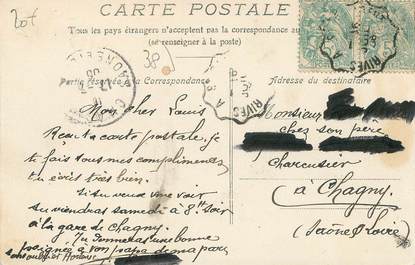 20f
CARTE POSTALE
Tous les pays étrangers n'acceptent pas la correspondance au
(se renseigner à la poste)
38
Partie réservée à la Correspondance
Adresse du destinataire
RIVES A
CHAGNY
Mon cher Louis
Reçu ta carte postale, je
te fais tous mes compliments
tu écris très bien.
Si tu veux me voir
tu viendras samedi à 8h soir
à la gare de Chagny.
Tu donneras une bonne
poignée à ton papa de ma part
Monsieur
chez son père
Charcutier
à Chagny
(Saône & Loire)